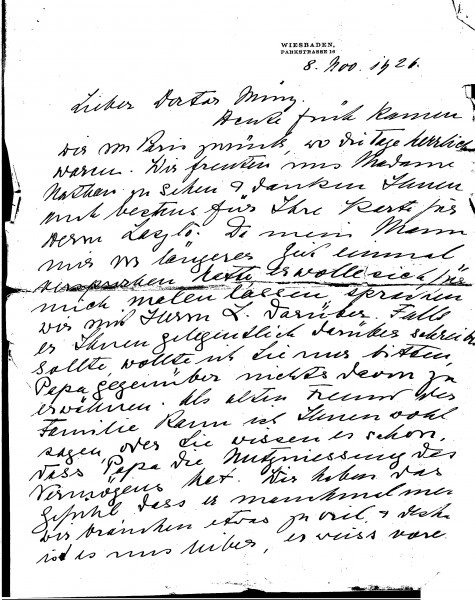 WIESBADEN,
PARKSTRASSE 16
8. Nov. 1926.
Lieber Doctor Münz.
Heute früh kamen
wir von Paris zurück, wo die Tage herrlich
waren. Wir freuten uns Madame
Nathan zu sehen & danken Ihnen
auch bestens für Ihre Karte für
Herrn Laszlo. Da mein Mann
mir vor längerer Zeit einmal
versprochen hatte er wolle sich für
mich malen lassen, sprachen
wir mit Herrn L. darüber. Falls
er Ihnen gelegentlich darüber schreiben
sollte, wollte ich Sie nur bitten,
Papa gegenüber nichts davon zu
erwähnen. Als alten Freund der
Familie kann ich Ihnen wohl
sagen, oder Sie wissen es schon,
dass Papa die Nutzniessung des
Vermögens hat. Wir haben das
Gefühl dass er manchmal meint
wir brauchen etwas zu viel, &
ist es uns lieber, er weiss